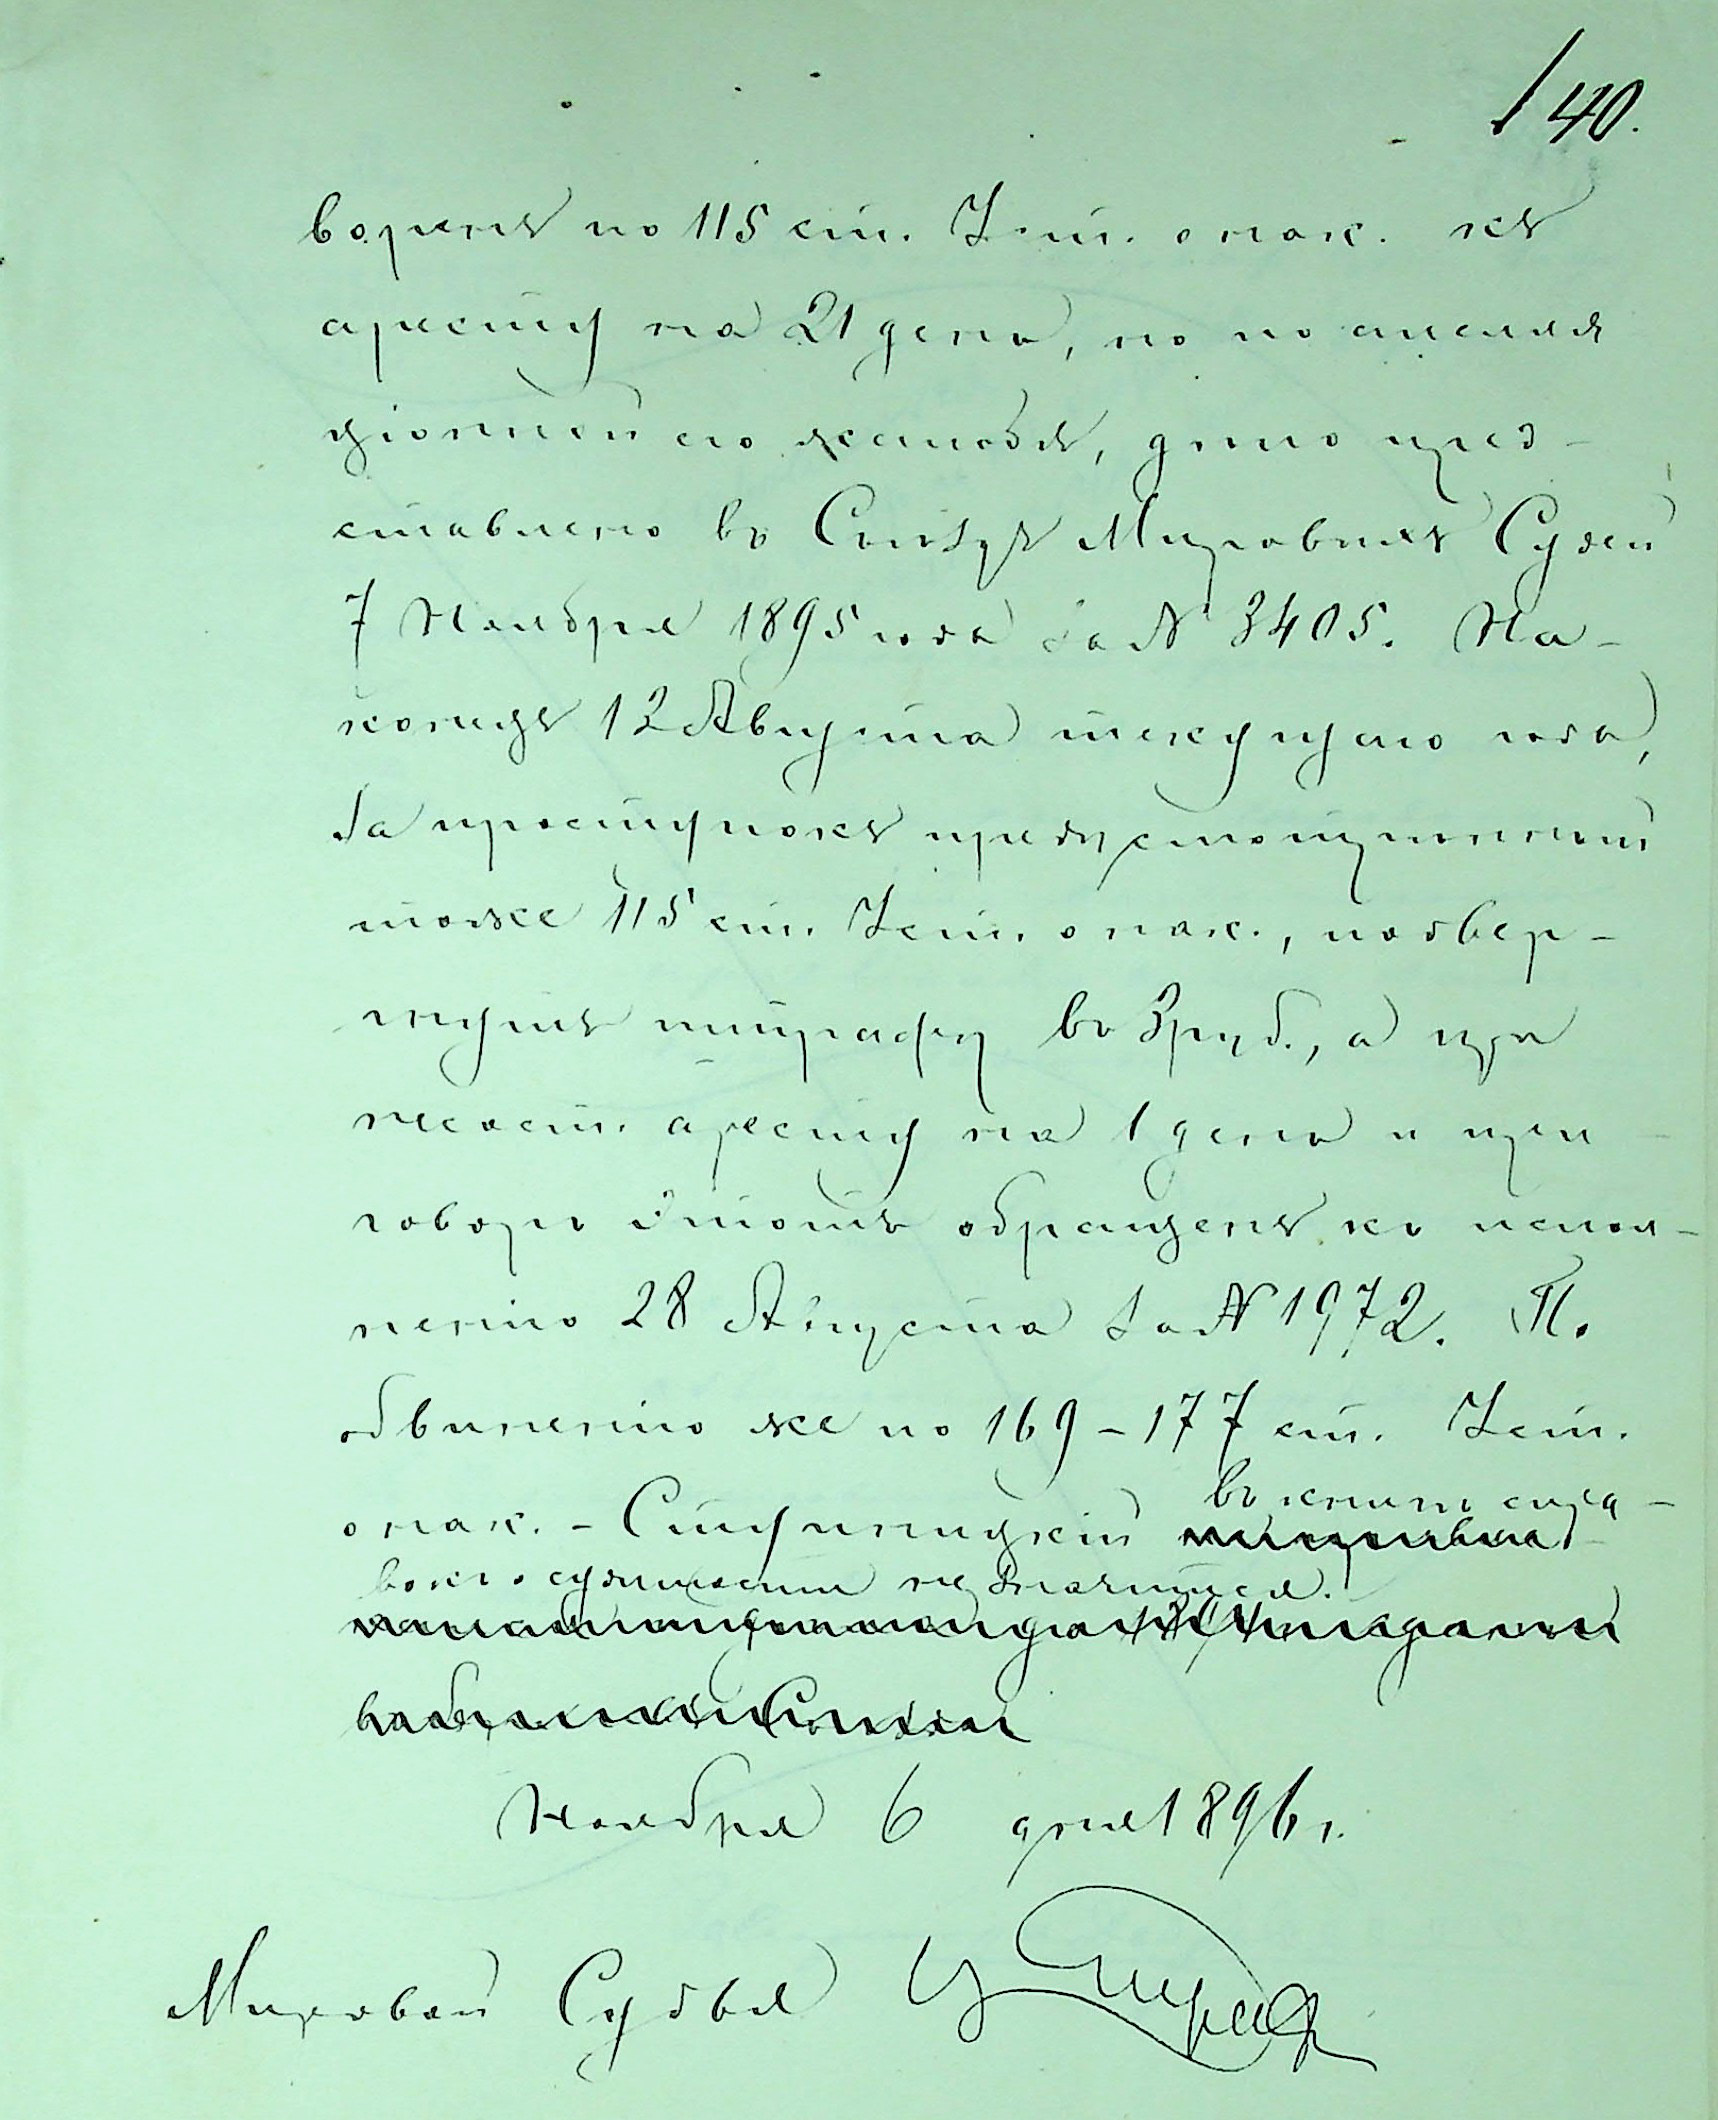 140.
воренъ по 115 ст. Уст. о нак. къ
аресту на 21 день, но по апелля
ціонной его жалобѣ, дѣло пред-
ставлено въ Съѣздъ Мировыхъ Судей
7 Ноября 1895 года за № 3405. На-
конецъ 12 Августа текущаго года,
за проступокъ предусмотрѣнный
тоже 115 ст. Уст. о нак., подвер-
гнутъ штрафу въ 3 руб., а при
несост. аресту на 1 день и при
говоръ этотъ обращенъ къ испол-
ненію 28 Августа за № 1972. По
обвиненію же по 169-177 ст. Уст.
о нак. - Ступницкій въ книгѣ спра-
вокъ о судимости не значится.
Ноября 6 дня 1896 г.
Мировой Судья